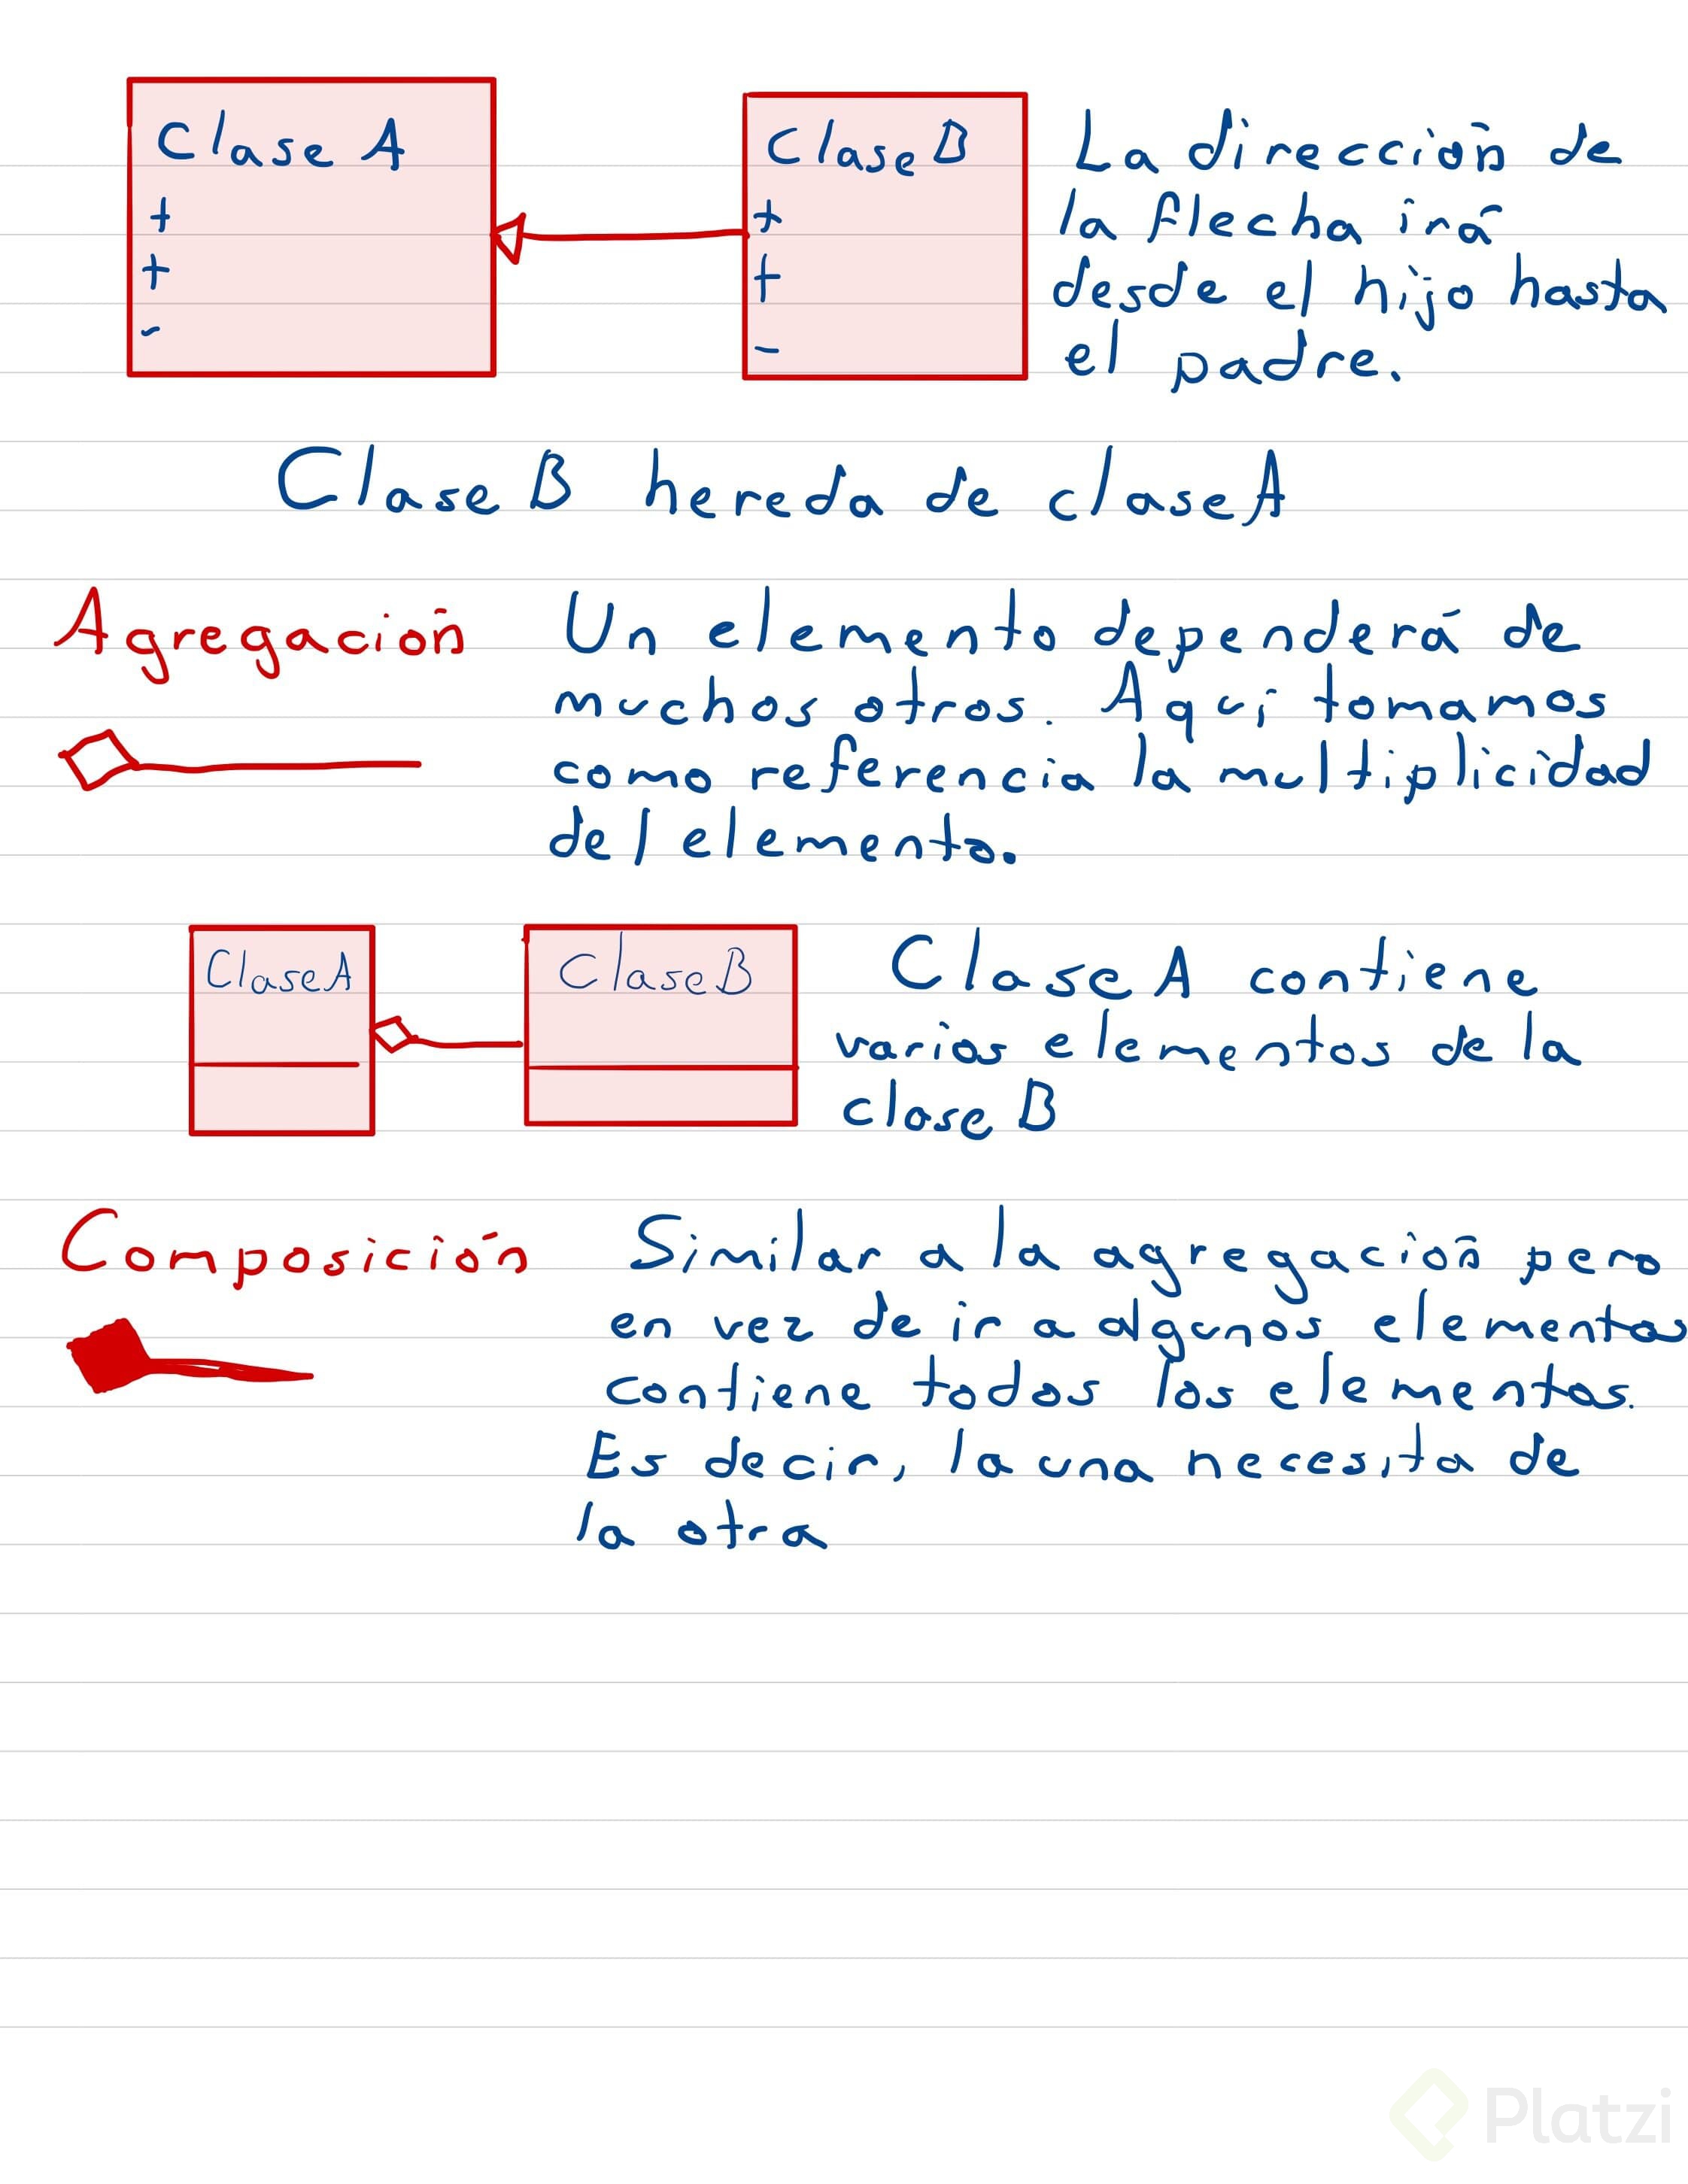 Clase A
+
+
-
Clase B
+
+
-
La dirección de
la flecha irá
desde el hijo hasta
el padre.
Clase B hereda de clase A
Agregación
Un elemento dependerá de
muchos otros. Aquí tomamos
como referencia la multiplicidad
del elemento.
Clase A
Clase B
Clase A contiene
varios elementos de la
clase B
Composición
Similar a la agregación pero
en vez de ir a algunos elementos
contiene todos los elementos.
Es decir, la una necesita de
la otra
Platzi